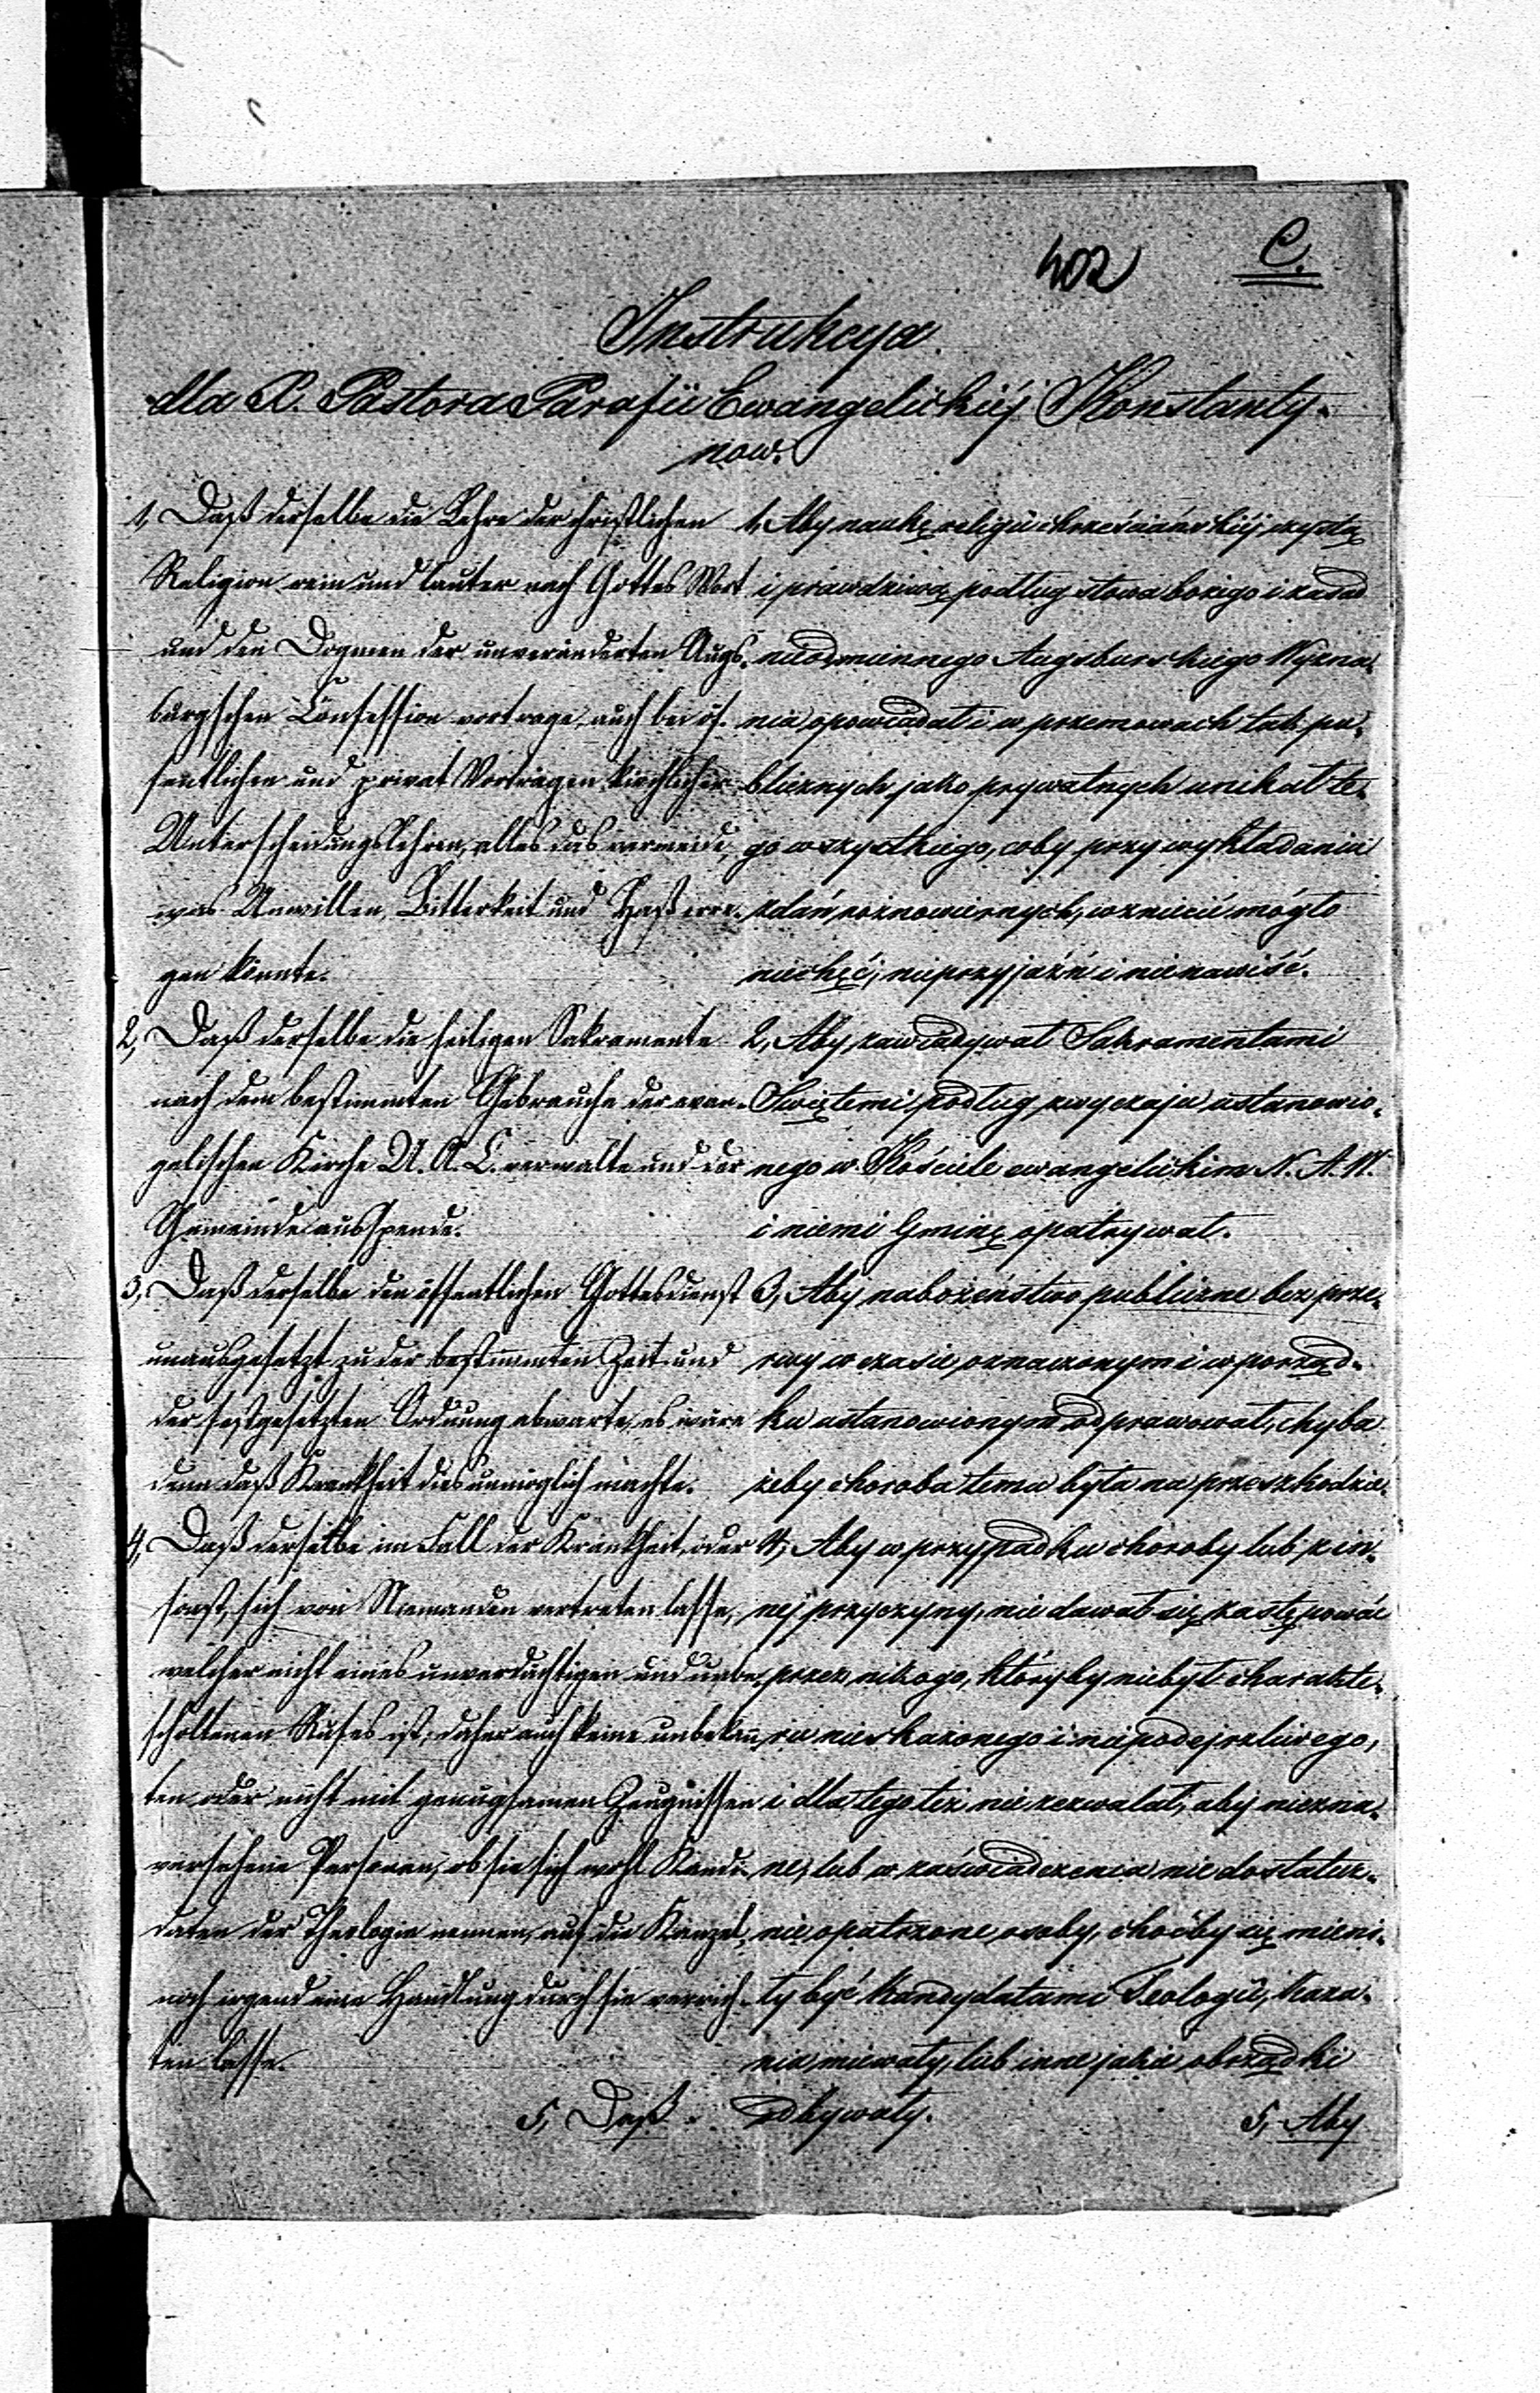 402 C.
Instrukcya
dla P. Pastora Parafii Ewangelickiéj Konstanty-
now.
1, Daß derselbe die Lehre der christlichen
Religion rein und lauter nach Gottes Wort
und den Dogmen der unveränderten Augs-
burgschen Confession vortrage, auch bei öf-
fentlichen und privat Vorträgen kirchlicher
Unterscheidungslehren, alles das vermeide,
was Unwillen, Bitterkeit und Haß erre-
gen könnte.
2, Daß derselbe die heiligen Sakramente
nach dem bestimmten Gebrauche der evan-
gelischen Kirche U. A. C. verwalte und der
Gemeinde ausspende.
3, Daß derselbe den öffentlichen Gottesdienst
unausgesetzt zu der bestimmten Zeit und
der festgesetzten Ordnung abwarte, es wäre
denn daß Krankheit dies unmöglich machte.
4, Daß derselbe im Fall der Krankheit, oder
sonst, sich von Niemanden vertreten lasse,
welcher nicht eines unverdächtigen und unbe-
scholtenen Rufes ist, daher auch keine unbekann-
ten oder nicht mit genugsamen Zeugnissen
versehene Personen, ob sie sich wohl Kandi-
daten der Theologie nennen, auf die Kanzel,
noch irgend eine Handlung durch sie verrich-
ten lasse.
5, Daß
1, Aby naukę religii chrześciańskiéj czystą
i prawdziwą podług słowa bożego i zasad
nieodmiennego Augsburskiego Wyzna-
nia opowiadał i w przemowach tak pu-
blicznych, jako prywatnych unikał te-
go wszystkiego, coby przy wykładaniu
zdań różnowiernych, wzniecić mógło
niechęć, nieprzyjaźń i nienawiść.
2, Aby zawiadywał Sakramentami
Swiętemi podług zwyczaju ustanowio-
nego w Kościele ewangelickim N. A. W.
i niemi Gminę opatrywał.
3, Aby nabożeństwo publiczne bez prze-
rwy w czasie oznaczonym i w porząd-
ku ustanowionym odprawował, chyba
żeby choroba temu była na przeszkodzie.
4, Aby w przypadku choroby lub z in-
nej przyczyny, nie dawał się zastępować
przez nikogo, któryby niebył charakte-
ru nieskażonego i niepodejrzliwego,
i dla tego też nie zezwalał, aby niezna-
ne, lub w zaświadczenia nie dostatecz-
nie opatrzone osoby, choćby się mieni-
ły być Kandydatami Teologii, kaza-
nia miewały, lub inne jakie obrządki
odbywały.
5, Aby